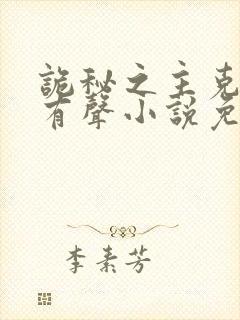 詭秘之主克
有聲小說免
李素芳